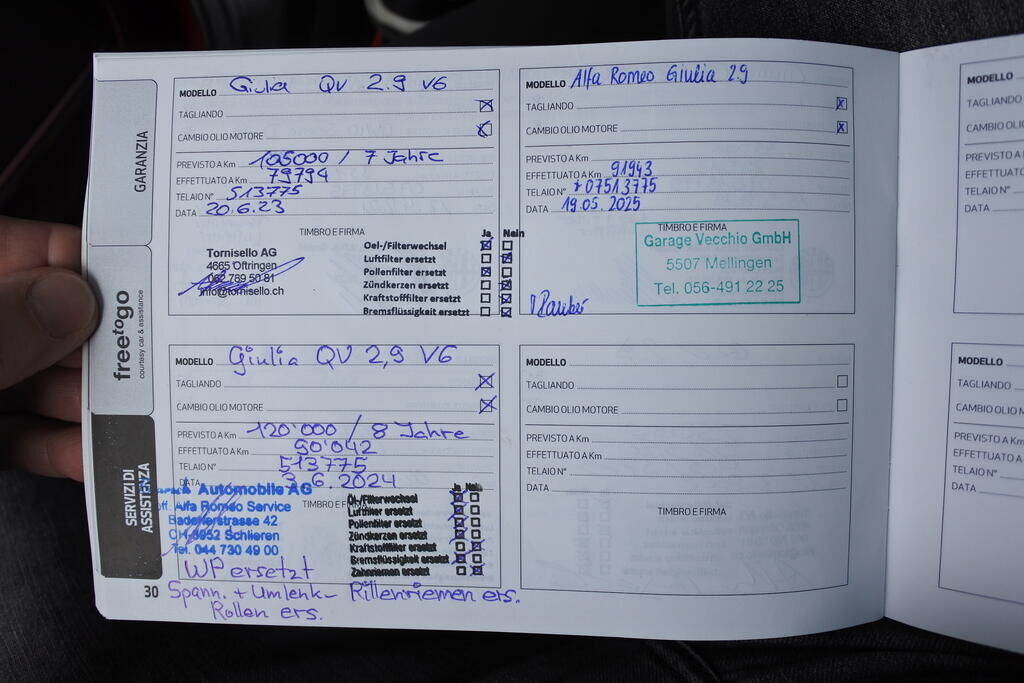 GARANZIA
freetogo
courtesy car & assistance
SERVIZI DI
ASSISTENZA
MODELLO Giulia QV 2.9 V6
TAGLIANDO
CAMBIO OLIO MOTORE
PREVISTO A Km 105000 / 7 Jahre
EFFETTUATO A Km 79794
TELAIO N° 513775
DATA 20.6.23
TIMBRO E FIRMA
Ja Nein
Tornisello AG
4665 Oftringen
062 789 50 81
info@tornisello.ch
Oel-/Filterwechsel
Luftfilter ersetzt
Pollenfilter ersetzt
Zündkerzen ersetzt
Kraftstofffilter ersetzt
Bremsflüssigkeit ersetzt
MODELLO Alfa Romeo Giulia 2.9
TAGLIANDO
CAMBIO OLIO MOTORE
PREVISTO A Km
EFFETTUATO A Km 91943
TELAIO N° *07513775
DATA 19.05.2025
TIMBRO E FIRMA
Garage Vecchio GmbH
5507 Mellingen
Tel. 056-491 22 25
MODELLO Giulia QV 2,9 V6
TAGLIANDO
CAMBIO OLIO MOTORE
PREVISTO A Km 120'000 / 8 Jahre
EFFETTUATO A Km 90'042
TELAIO N° 513775
DATA 3.6.2024
TIMBRO E FIRMA
Automobile AG
off. Alfa Romeo Service
Badenerstrasse 42
CH-8952 Schlieren
Tel. 044 730 49 00
Ja Nein
Öl-/Filterwechsel
Luftfilter ersetzt
Pollenfilter ersetzt
Zündkerzen ersetzt
Kraftstofffilter ersetzt
Bremsflüssigkeit ersetzt
Zahnriemen ersetzt
WP ersetzt
Spann. + Umlenk- Rillenriemen ers.
Rollen ers.
30
MODELLO
TAGLIANDO
CAMBIO OLIO MOTORE
PREVISTO A Km
EFFETTUATO A Km
TELAIO N°
DATA
TIMBRO E FIRMA
MODELLO
TAGLIANDO
CAMBIO OLIO
PREVISTO A
EFFETTUATO A
TELAIO N°
DATA
MODELLO
TAGLIANDO
CAMBIO OLIO
PREVISTO A Km
EFFETTUATO A
TELAIO N°
DATA